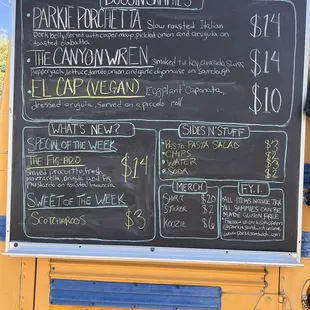 PARKIE PORCHETTA Slow roasted Italian $14
Pork belly, served with caper mayo, pickled onion and arugula on
toasted ciabatta
THE CANYON WREN Smoked turkey, avocado, Swiss, $14
Pepperjack, lettuce, tomato, onion, and garlic dijonnaise on Sourdough
EL CAP (VEGAN) Eggplant Caponata, $10
dressed arugula, served on a piccolo roll
WHAT'S NEW?
SPECIAL OF THE WEEK
THE FIG-ARO $14
Shaved Prosciutto, fresh
mozzarella, arugula and fig
mustardo on toasted focaccia
SWEET OF THE WEEK
SCOTCHEROOS $3
SIDES N'STUFF
PESTO PASTA SALAD $3
CHIPS
WATER
SODA
MERCH
SHIRT $20
STICKER $2
KOOZIE $6
F.Y.I.
ALL ITEMS INCLUDE TAX
ALL SAMMIES CAN BE
MADE GLUTEN FREE